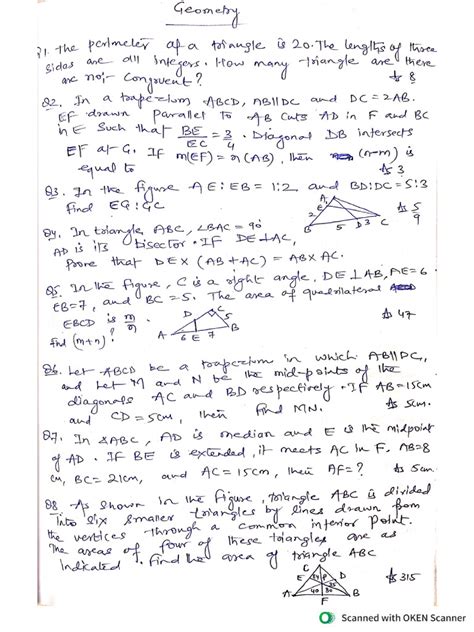 Geometry
Q1. The perimeter of a triangle is 20. The lengths of three
sides are all integers. How many triangle are there
are not congruent? As 8
Q2. In a trapezium ABCD, AB||DC and DC=2AB.
EF drawn parallel to AB cuts AD in F and BC
in E such that BE/EC = 3/4. Diagonal DB intersects
EF at G. If m(EF)=n(AB), then (n-m) is
equal to As 3
Q3. In the figure AE:EB=1:2 and BD:DC=5:3
Find EG:GC
A
E
2
B 5 D 3 C
As 5/9
Q4. In triangle ABC, ∠BAC=90
AD is its bisector. If DE⊥AC,
Prove that DE×(AB+AC)=AB×AC.
Q5. In the figure, C is a right angle, DE⊥AB, AE=6
EB=7, and BC=5. The area of quadrilateral
EBCD is m/n. As 47
find (m+n)?
D C 5
A 6 E 7 B
Q6. Let ABCD be a trapezium in which AB||DC,
and let M and N be the mid-points of the
diagonals AC and BD respectively. If AB=15cm
and CD=5cm, then find MN. As 5cm.
Q7. In ΔABC, AD is median and E is the midpoint
of AD. If BE is extended, it meets AC in F. AB=8
cm, BC=21cm, and AC=15cm, then AF=? As 5cm
Q8 As shown in the figure, triangle ABC is divided
into six smaller triangles by lines drawn from
the vertices through a common interior point.
The areas of four of these triangles are as
indicated. Find the area of triangle ABC
C
E P D
40 30
A F B
As 315
Scanned with OKEN Scanner